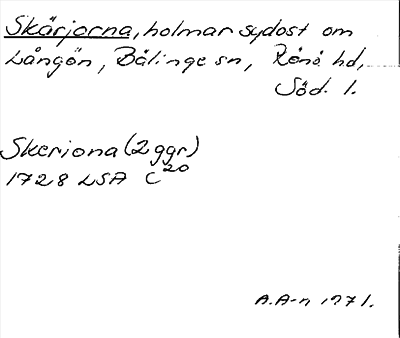 Skärjorna, holmar sydost om
Långön, Bälinge sn, Rönö hd,
Söd. l.
Skeriona (2 ggr)
1728 LSA C20
A.A-n 1971.